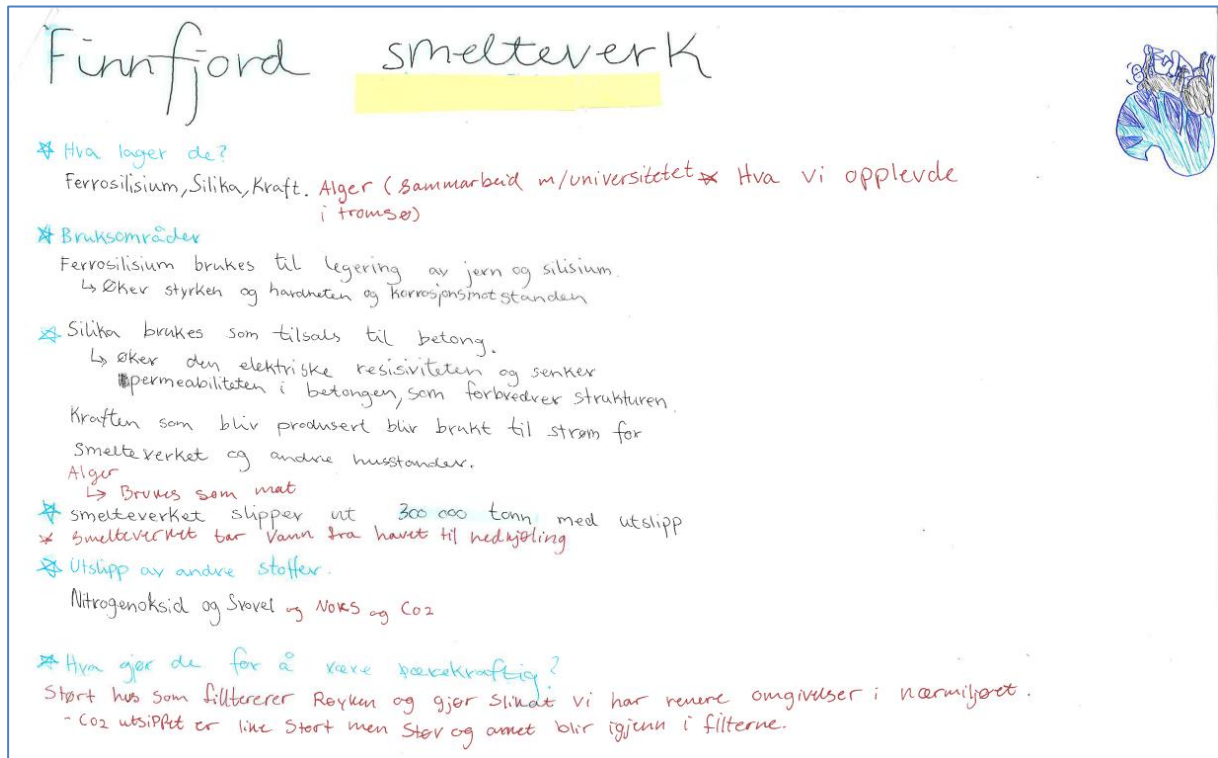 Finnfjord smelteverk
Hva lager de?
Ferrosilisium, Silika, Kraft. Alger (sammarbeid m/universitetet
i tromsø)
Hva vi opplevde
Bruksområder
Ferrosilisium brukes til legering av jern og silisium.
↳ Øker styrken og hardheten og korrosjonsmotstanden
Silika brukes som tilsats til betong.
↳ Øker den elektriske resisiviteten og senker
permeabiliteten i betongen, som forbredrer strukturen.
Kraften som blir produsert blir brukt til strøm for
smelteverket og andre husstander.
Alger
↳ Brukes som mat
smelteverket slipper ut 300 000 tonn med utslipp
smelteverket tar vann fra havet til nedkjøling
Utslipp av andre stoffer.
Nitrogenoksid og Svovel og Noks og Co2
Hva gjør de for å være bærekraftig?
Stort hus som fillterer Røyken og gjør slikat vi har renere omgivelser i nærmiljøet.
- Co2 utsippet er like stort men støv og annet blir igjenn i filterne.